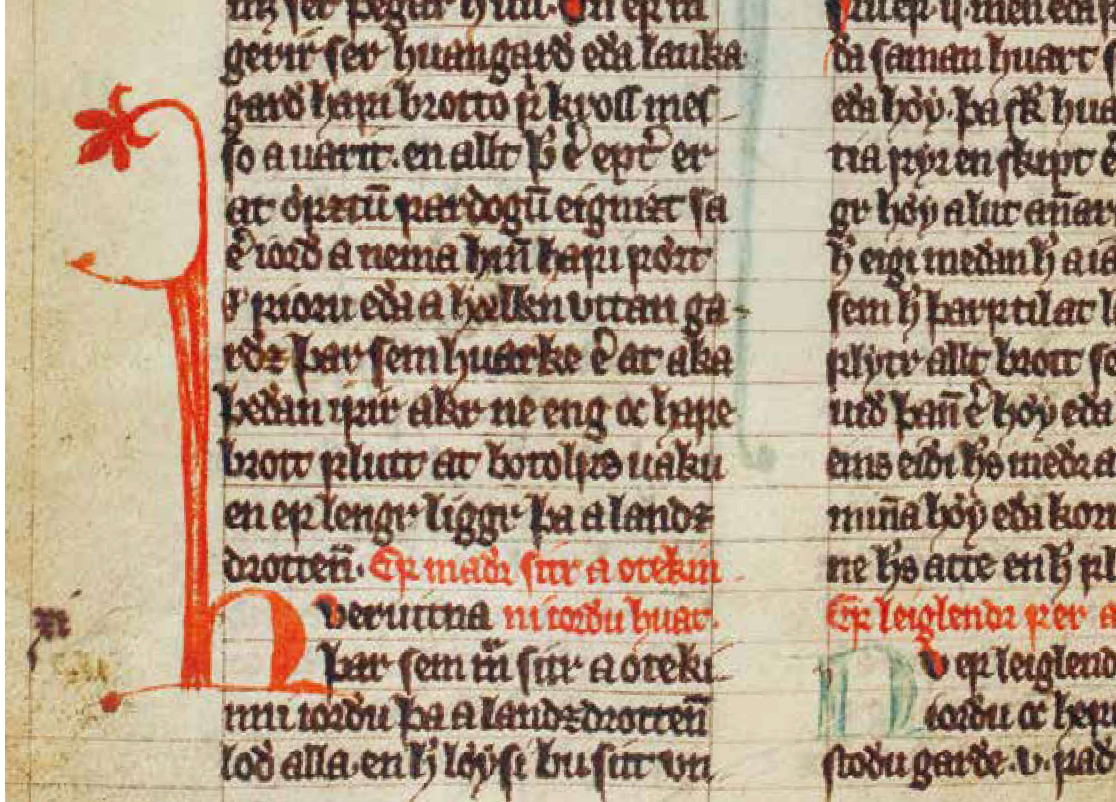 gerir ser huangard eda lauka
gard hafi brotto fẏr kross mes
so a uarit. en allt þ̄ e᷎r ept᷎ er
at drottū fardogū eignizt sa
e᷎ iord a nema hm̄ hafi fort
eda a utan ga
rdz þar sem huarke e᷎ at aka
þedan ifir akr ne eng oc hafe
brott flutt at botolfs uaku
en ef lengr liggr þa a landz
drotteñ. Ef madr sitr a otekin
verutina ni iordu huat.
þar sem m̄ sitr a oteki
nni iordu þa a landzdrotteñ
lod alla. en h̄ løysi bu sitt vn
da saman huart
eda høy. þa sk̄ hua
tia fyr en skipt
gr høy a lut añar
h̄ eigi medan h̄ a ia
sem h̄ þarf til at
flytr allt brott
uid þañ e᷎ høy eda
ems eidi h̄s medr a
miña høy eda kor
ne h̄s atte en h̄ fl
Ef leiglendr fer a
v ef leiglend
iordu oc hef
stodu garde. v. fad